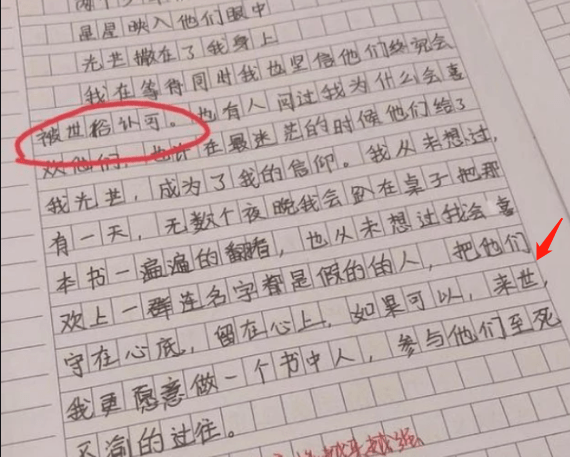 星星映入他们眼中
光芒撒在了我身上
我在等待同时我也坚信他们终究会
被世俗认可。也有人问过我为什么会喜
欢他们，也许在最迷茫的时候他们给了
我光芒，成为了我的信仰。我从未想过，
有一天，无数个夜晚我会趴在桌子把那
本书一遍遍的翻看，也从未想过我会喜
欢上一群连名字都是假的的人，把他们
守在心底，留在心上，如果可以，来世，
我更愿意做一个书中人，参与他们至死
不渝的过往。